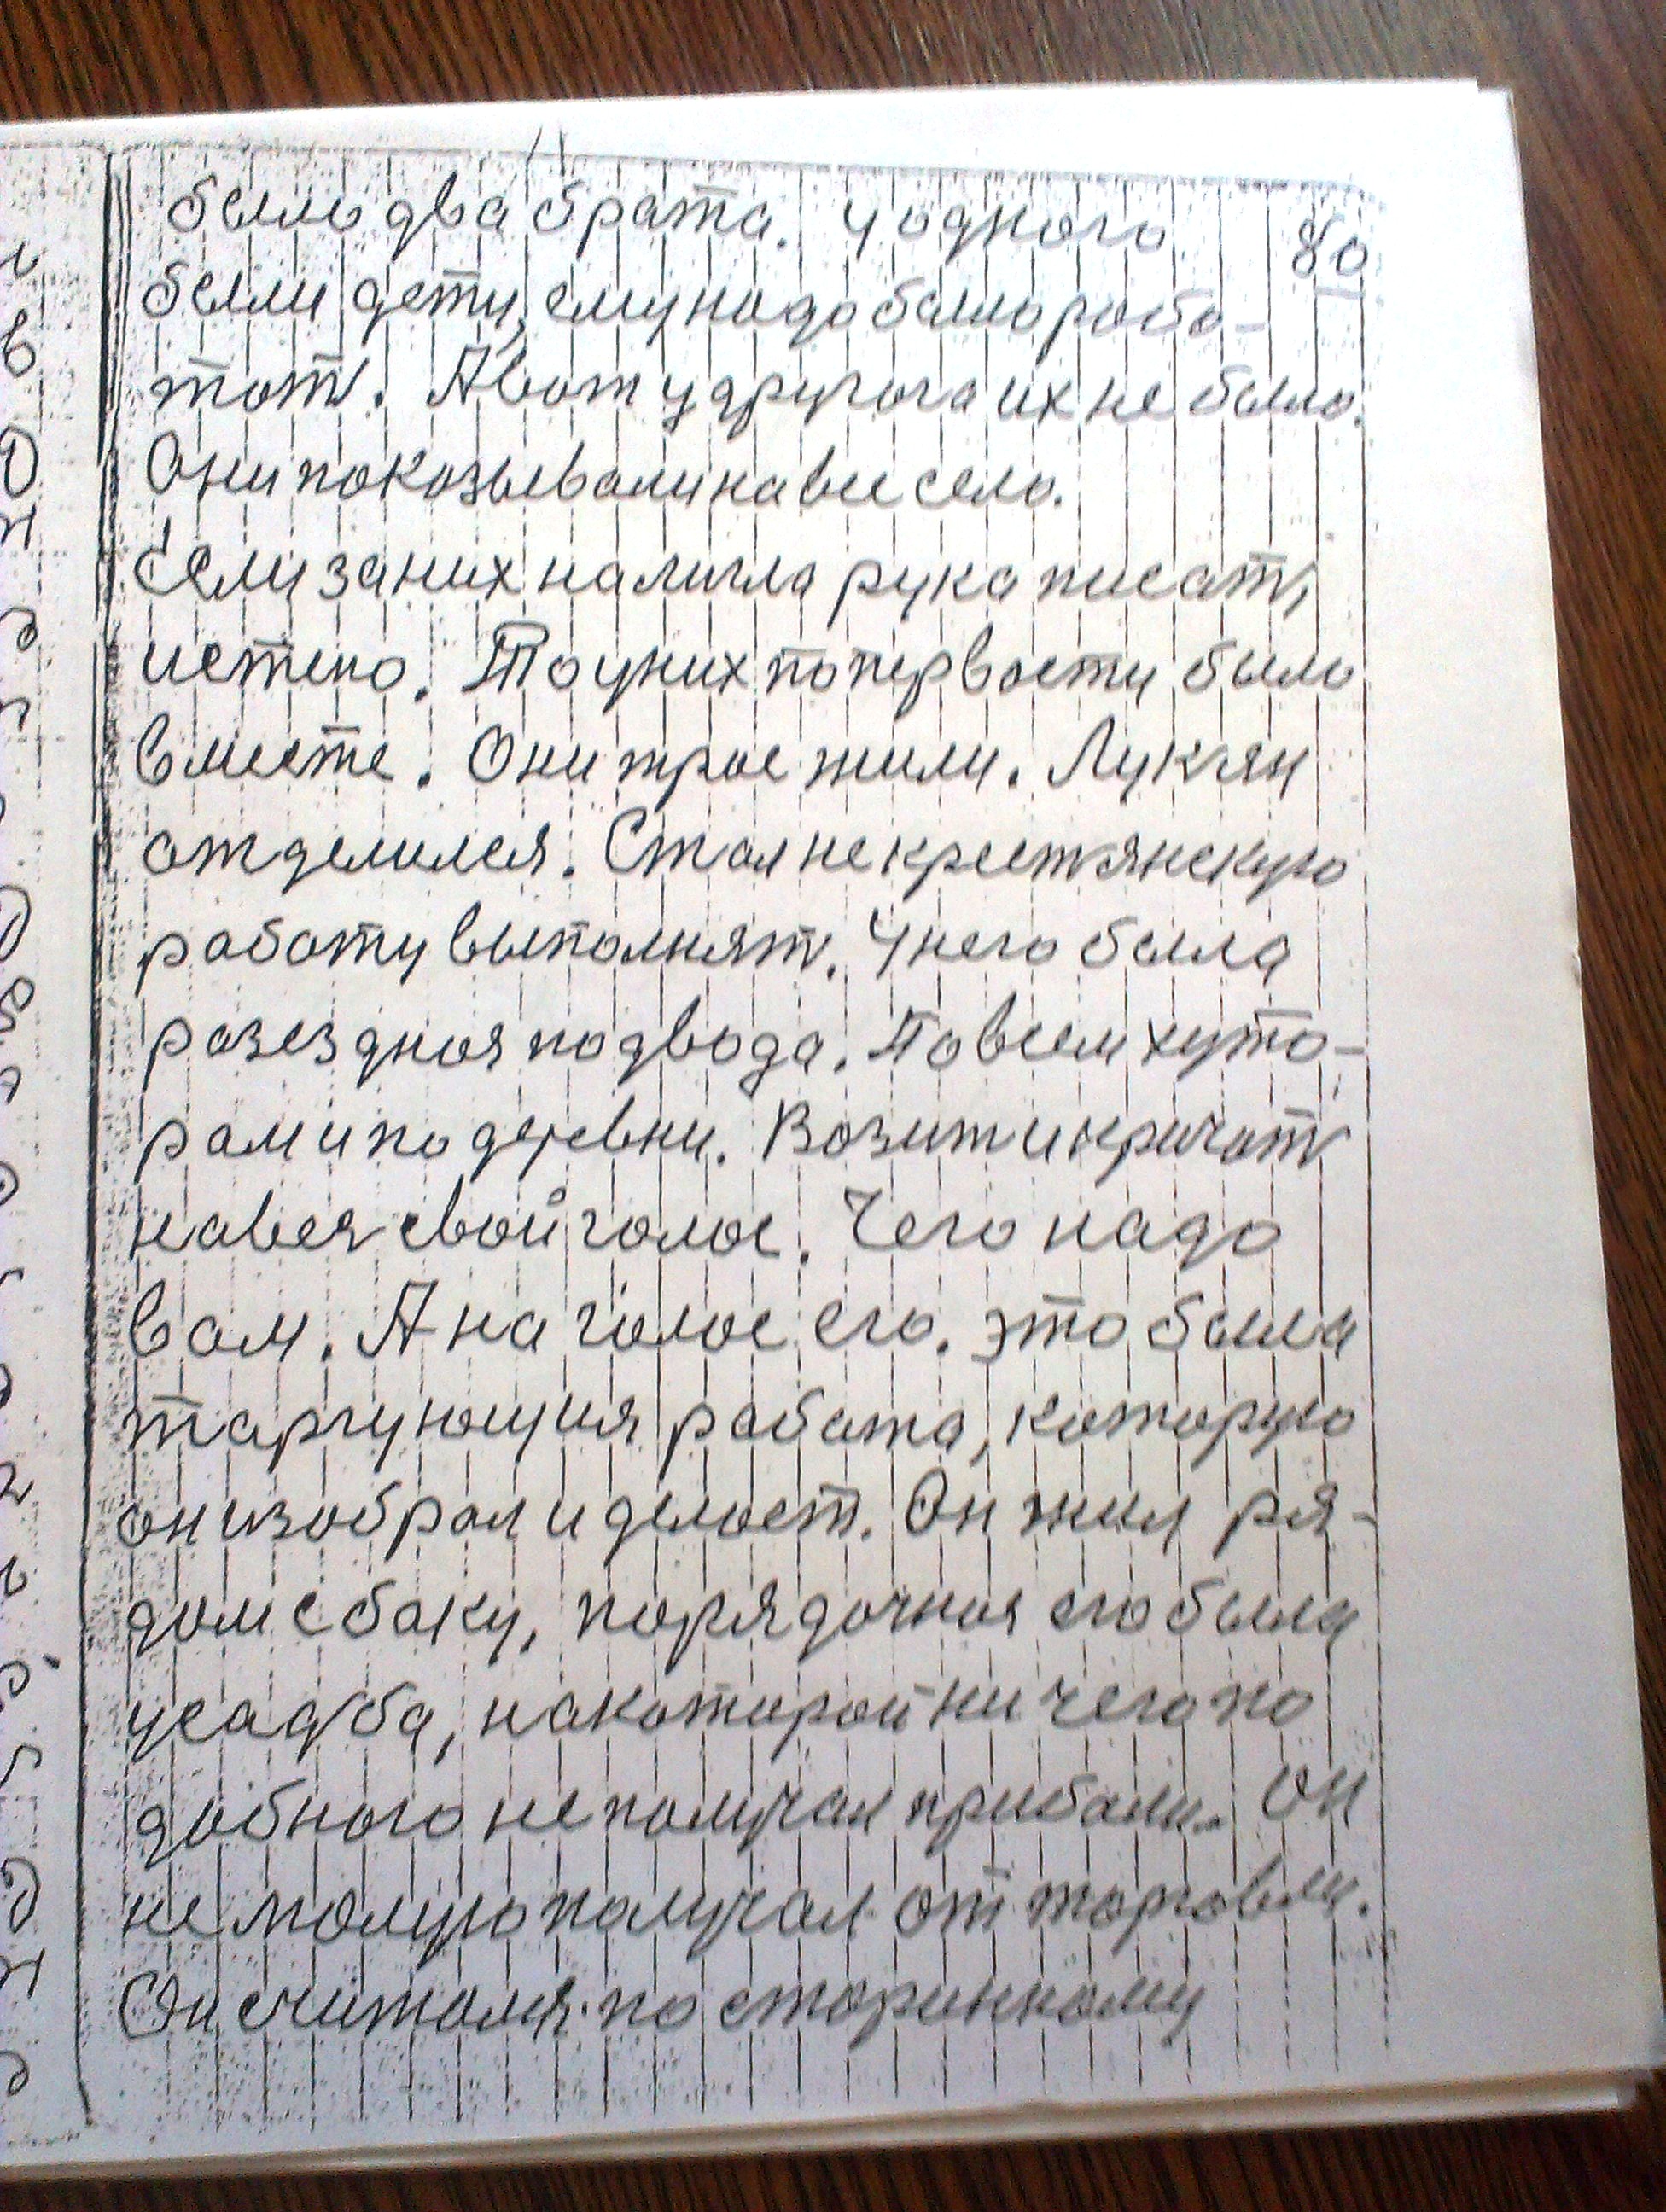 было два брата. У одного
80
были дети, ему надо было рабо-
тот. А вот у другога их не было.
Они показывали на все село.
Если за них налигла рука писат,
истено. То у них по первости было
вместе. Они трое жили. Лукян
отделился. Стал не крестянскую
работу выполнят. У него была
разездная подвода. По всем хуто-
рам и по деревни. Возит и кричат
на вся свой голос. Чего надо
вам. А на голос его. это была
таргующия работа, которую
он изобрал и делает. Он жил ря-
дом с боку, порядочная его была
усадба, на каторой ни чего по
добного не получал прибали. Он
не малую получал от торговли.
Он считался по старинкому